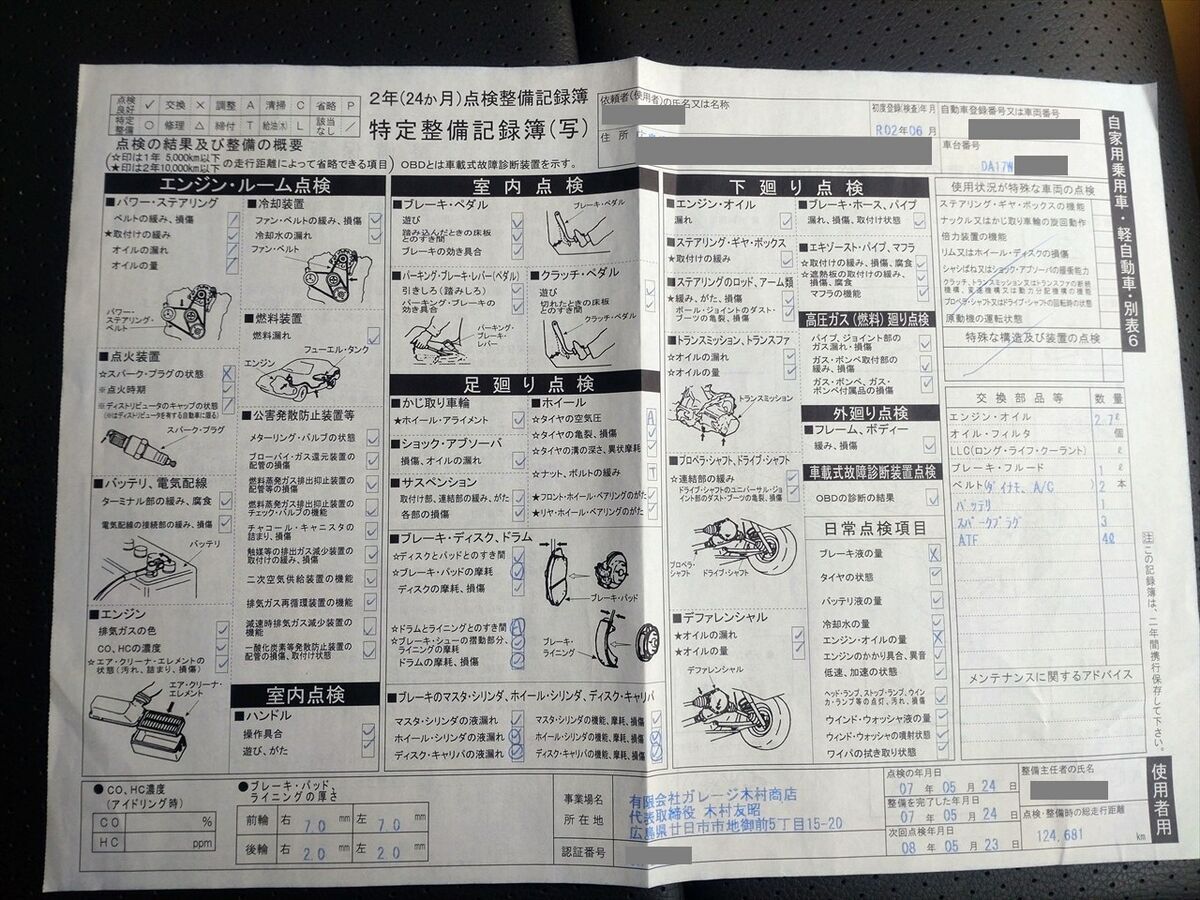 点検良好 ✓ 交換 × 調整 A 清掃 C 省略 P
特定整備 ○ 修理 △ 締付 T 給油(水) L 該当なし /
2年(24か月)点検整備記録簿
特定整備記録簿(写)
点検の結果及び整備の概要
(☆印は1年 5,000km以下 ★印は2年10,000km以下 の走行距離によって省略できる項目)
OBDとは車載式故障診断装置を示す。
依頼者(使用者)の氏名又は名称
住所
初度登録(検査)年月
R02年06月
自動車登録番号又は車両番号
車台番号
DA17W
自家用乗用車・軽自動車・別表6
エンジン・ルーム点検
■パワー・ステアリング
ベルトの緩み、損傷 /
★取付けの緩み /
オイルの漏れ /
オイルの量 /
パワー・ステアリング・ベルト
■点火装置
☆スパーク・プラグの状態 ×
※点火時期 ✓
※ディストリビュータのキャップの状態 /
(※はディストリビュータを有する自動車に限る)
スパーク・プラグ
■バッテリ、電気配線
ターミナル部の緩み、腐食 ✓
電気配線の接続部の緩み、損傷 ✓
バッテリ
■エンジン
排気ガスの色 ✓
CO、HCの濃度 ✓
☆エア・クリーナ・エレメントの状態(汚れ、詰まり、損傷) ✓
エア・クリーナ・エレメント
■冷却装置
ファン・ベルトの緩み、損傷 ✓
冷却水の漏れ ✓
ファン・ベルト
■燃料装置
燃料漏れ ✓
フューエル・タンク
エンジン
■公害発散防止装置等
メターリング・バルブの状態 ✓
ブローバイ・ガス還元装置の配管の損傷 ✓
燃料蒸発ガス排出抑止装置の配管等の損傷 ✓
燃料蒸発ガス排出抑止装置のチェック・バルブの機能 ✓
チャコール・キャニスタの詰まり、損傷 ✓
触媒等の排出ガス減少装置の取付けの緩み、損傷 ✓
二次空気供給装置の機能 ✓
排気ガス再循環装置の機能 ✓
減速時排気ガス減少装置の機能 ✓
一酸化炭素等発散防止装置の配管の損傷、取付け状態 ✓
室内点検
■ハンドル
操作具合 ✓
遊び、がた ✓
室内点検
■ブレーキ・ペダル
遊び ✓
踏み込んだときの床板とのすき間 ✓
ブレーキの効き具合 ✓
ブレーキ・ペダル
■パーキング・ブレーキ・レバー(ペダル)
引きしろ(踏みしろ) ✓
パーキング・ブレーキの効き具合 ✓
パーキング・ブレーキ・レバー
■クラッチ・ペダル
遊び
切れたときの床板とのすき間
クラッチ・ペダル
足廻り点検
■かじ取り車輪
★ホイール・アライメント ✓
■ショック・アブソーバ
損傷、オイルの漏れ ✓
■サスペンション
取付部、連結部の緩み、がた ✓
各部の損傷 ✓
■ホイール
☆タイヤの空気圧 A
☆タイヤの亀裂、損傷 ✓
☆タイヤの溝の深さ、異状摩耗 ✓
☆ナット、ボルトの緩み T
★フロント・ホイール・ベアリングのがた ✓
★リヤ・ホイール・ベアリングのがた ✓
■ブレーキ・ディスク、ドラム
☆ディスクとパッドとのすき間 ✓
☆ブレーキ・パッドの摩耗 ✓
ディスクの摩耗、損傷 ✓
ブレーキ・パッド
☆ドラムとライニングとのすき間
☆ブレーキ・シューの摺動部分、ライニングの摩耗 ✓
ドラムの摩耗、損傷 ✓
ブレーキ・ライニング
■ブレーキのマスタ・シリンダ、ホイール・シリンダ、ディスク・キャリパ
マスタ・シリンダの液漏れ ✓ マスタ・シリンダの機能、摩耗、損傷 ✓
ホイール・シリンダの液漏れ ✓ ホイール・シリンダの機能、摩耗、損傷 ✓
ディスク・キャリパの液漏れ ✓ ディスク・キャリパの機能、摩耗、損傷 ✓
下廻り点検
■エンジン・オイル
漏れ ✓
■ステアリング・ギヤ・ボックス
★取付けの緩み ✓
■ステアリングのロッド、アーム類
★緩み、がた、損傷 ✓
ボール・ジョイントのダスト・ブーツの亀裂、損傷 ✓
■トランスミッション、トランスファ
☆オイルの漏れ ✓
☆オイルの量 ✓
トランスミッション
■プロペラ・シャフト、ドライブ・シャフト
☆連結部の緩み ✓
ドライブ・シャフトのユニバーサル・ジョイント部のダスト・ブーツの亀裂、損傷 ✓
プロペラ・シャフト ドライブ・シャフト
■デファレンシャル
★オイルの漏れ ✓
★オイルの量 ✓
デファレンシャル
■ブレーキ・ホース、パイプ
漏れ、損傷、取付け状態 ✓
■エキゾースト・パイプ、マフラ
☆取付けの緩み、損傷、腐食 ✓
☆遮熱板の取付けの緩み、損傷、腐食 ✓
マフラの機能 ✓
高圧ガス(燃料)廻り点検
パイプ、ジョイント部のガス漏れ・損傷 ✓
ガス・ボンベ取付部の緩み、損傷 ✓
ガス・ボンベ、ガス・ボンベ付属品の損傷 ✓
外廻り点検
■フレーム、ボディー
緩み、損傷 ✓
車載式故障診断装置点検
OBDの診断の結果 ✓
日常点検項目
ブレーキ液の量 ×
タイヤの状態 ✓
バッテリ液の量 ✓
冷却水の量 ✓
エンジン・オイルの量 ×
エンジンのかかり具合、異音 ✓
低速、加速の状態 ✓
ヘッド・ランプ、ストップ・ランプ、ウインカ・ランプ等の点灯、汚れ、損傷 ✓
ウインド・ウォッシャ液の量 ✓
ウィンド・ウォッシャの噴射状態 ✓
ワイパの拭き取り状態 ✓
使用状況が特殊な車両の点検
ステアリング・ギヤ・ボックスの機能
ナックル又はかじ取り車輪の旋回動作
倍力装置の機能
リム又はホイール・ディスクの損傷
シャシばね又はショック・アブソーバの緩衝能力
クラッチ、トランスミッション又はトランスファの断続機構、変速機構又は動力分配機構の機能
プロペラ・シャフト又はドライブ・シャフトの回転時の状態
原動機の運転状態
特殊な構造及び装置の点検
交換部品等 数量
エンジン・オイル 2.7ℓ
オイル・フィルタ 個
LLC(ロング・ライフ・クーラント) ℓ
ブレーキ・フルード 1 ℓ
ベルト(ダイナモ、A/C) 2 本
バッテリ 1
スパークプラグ 3
ATF 4ℓ
メンテナンスに関するアドバイス
注 この記録簿は、二年間携行保存して下さい。
使用者用
●CO、HC濃度(アイドリング時)
CO %
HC ppm
●ブレーキ・パッド、ライニングの厚さ
前輪 右 7.0 mm 左 7.0 mm
後輪 右 2.0 mm 左 2.0 mm
事業場名
所在地
認証番号
有限会社ガレージ木村商店
代表取締役 木村友昭
広島県廿日市市地御前5丁目15-20
点検の年月日
07年05月24日
整備を完了した年月日
07年05月24日
次回点検年月日
08年05月23日
整備主任者の氏名
点検・整備時の総走行距離
124,681 km